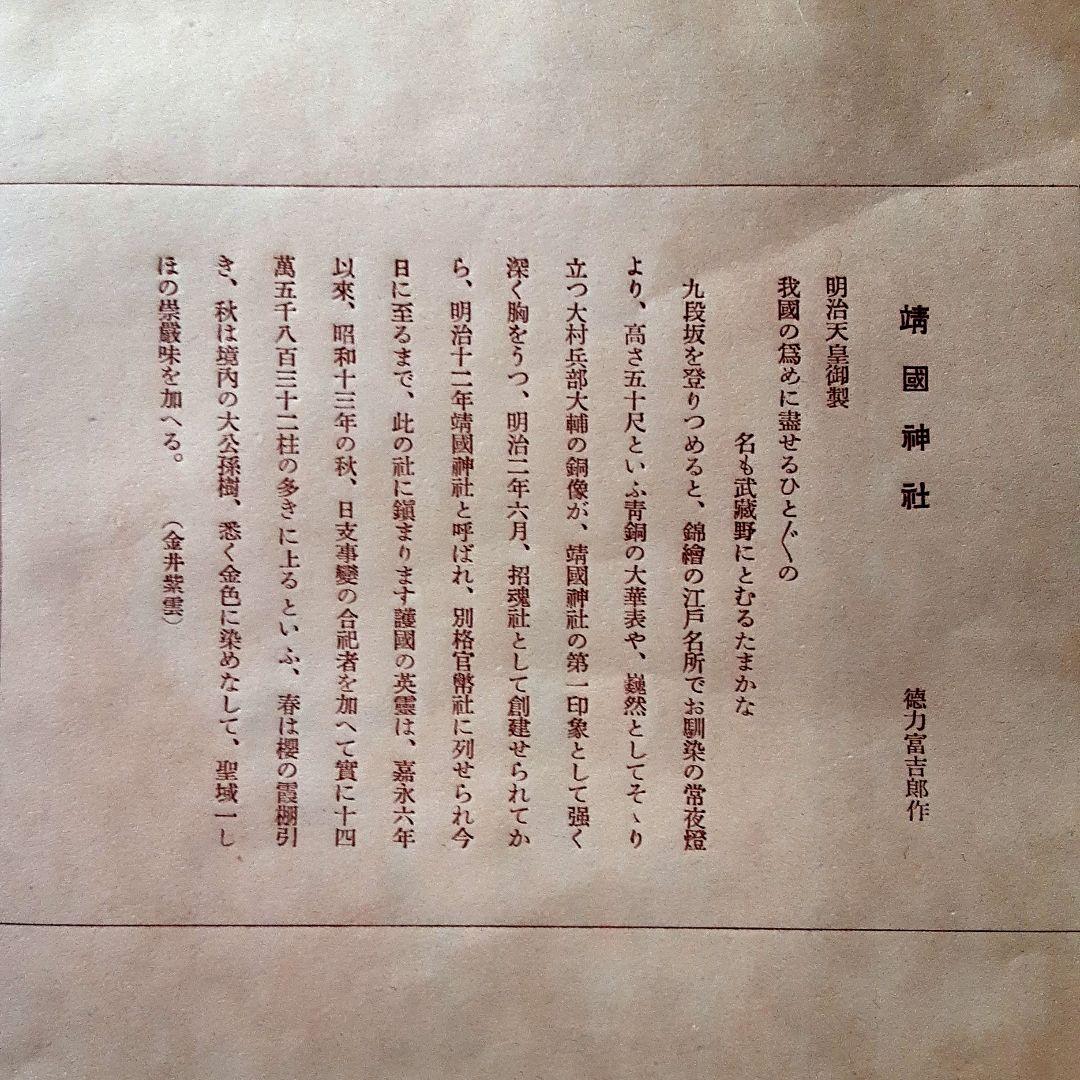 靖國神社
德力富吉郎作
明治天皇御製
我國の爲めに盡せるひと〴〵の
名も武藏野にとむるたまかな
九段坂を登りつめると、錦繪の江戸名所でお馴染の常夜燈
より、高さ五十尺といふ靑銅の大華表や、巍然としてそゝり
立つ大村兵部大輔の銅像が、靖國神社の第一印象として强く
深く胸をうつ、明治二年六月、招魂社として創建せられてか
ら、明治十二年靖國神社と呼ばれ、別格官幣社に列せられ今
日に至るまで、此の社に鎭まります護國の英靈は、嘉永六年
以來、昭和十三年の秋、日支事變の合祀者を加へて實に十四
萬五千八百三十二柱の多きに上るといふ、春は櫻の霞棚引
き、秋は境內の大公孫樹、悉く金色に染めなして、聖域一し
ほの崇嚴味を加へる。　（金井紫雲）